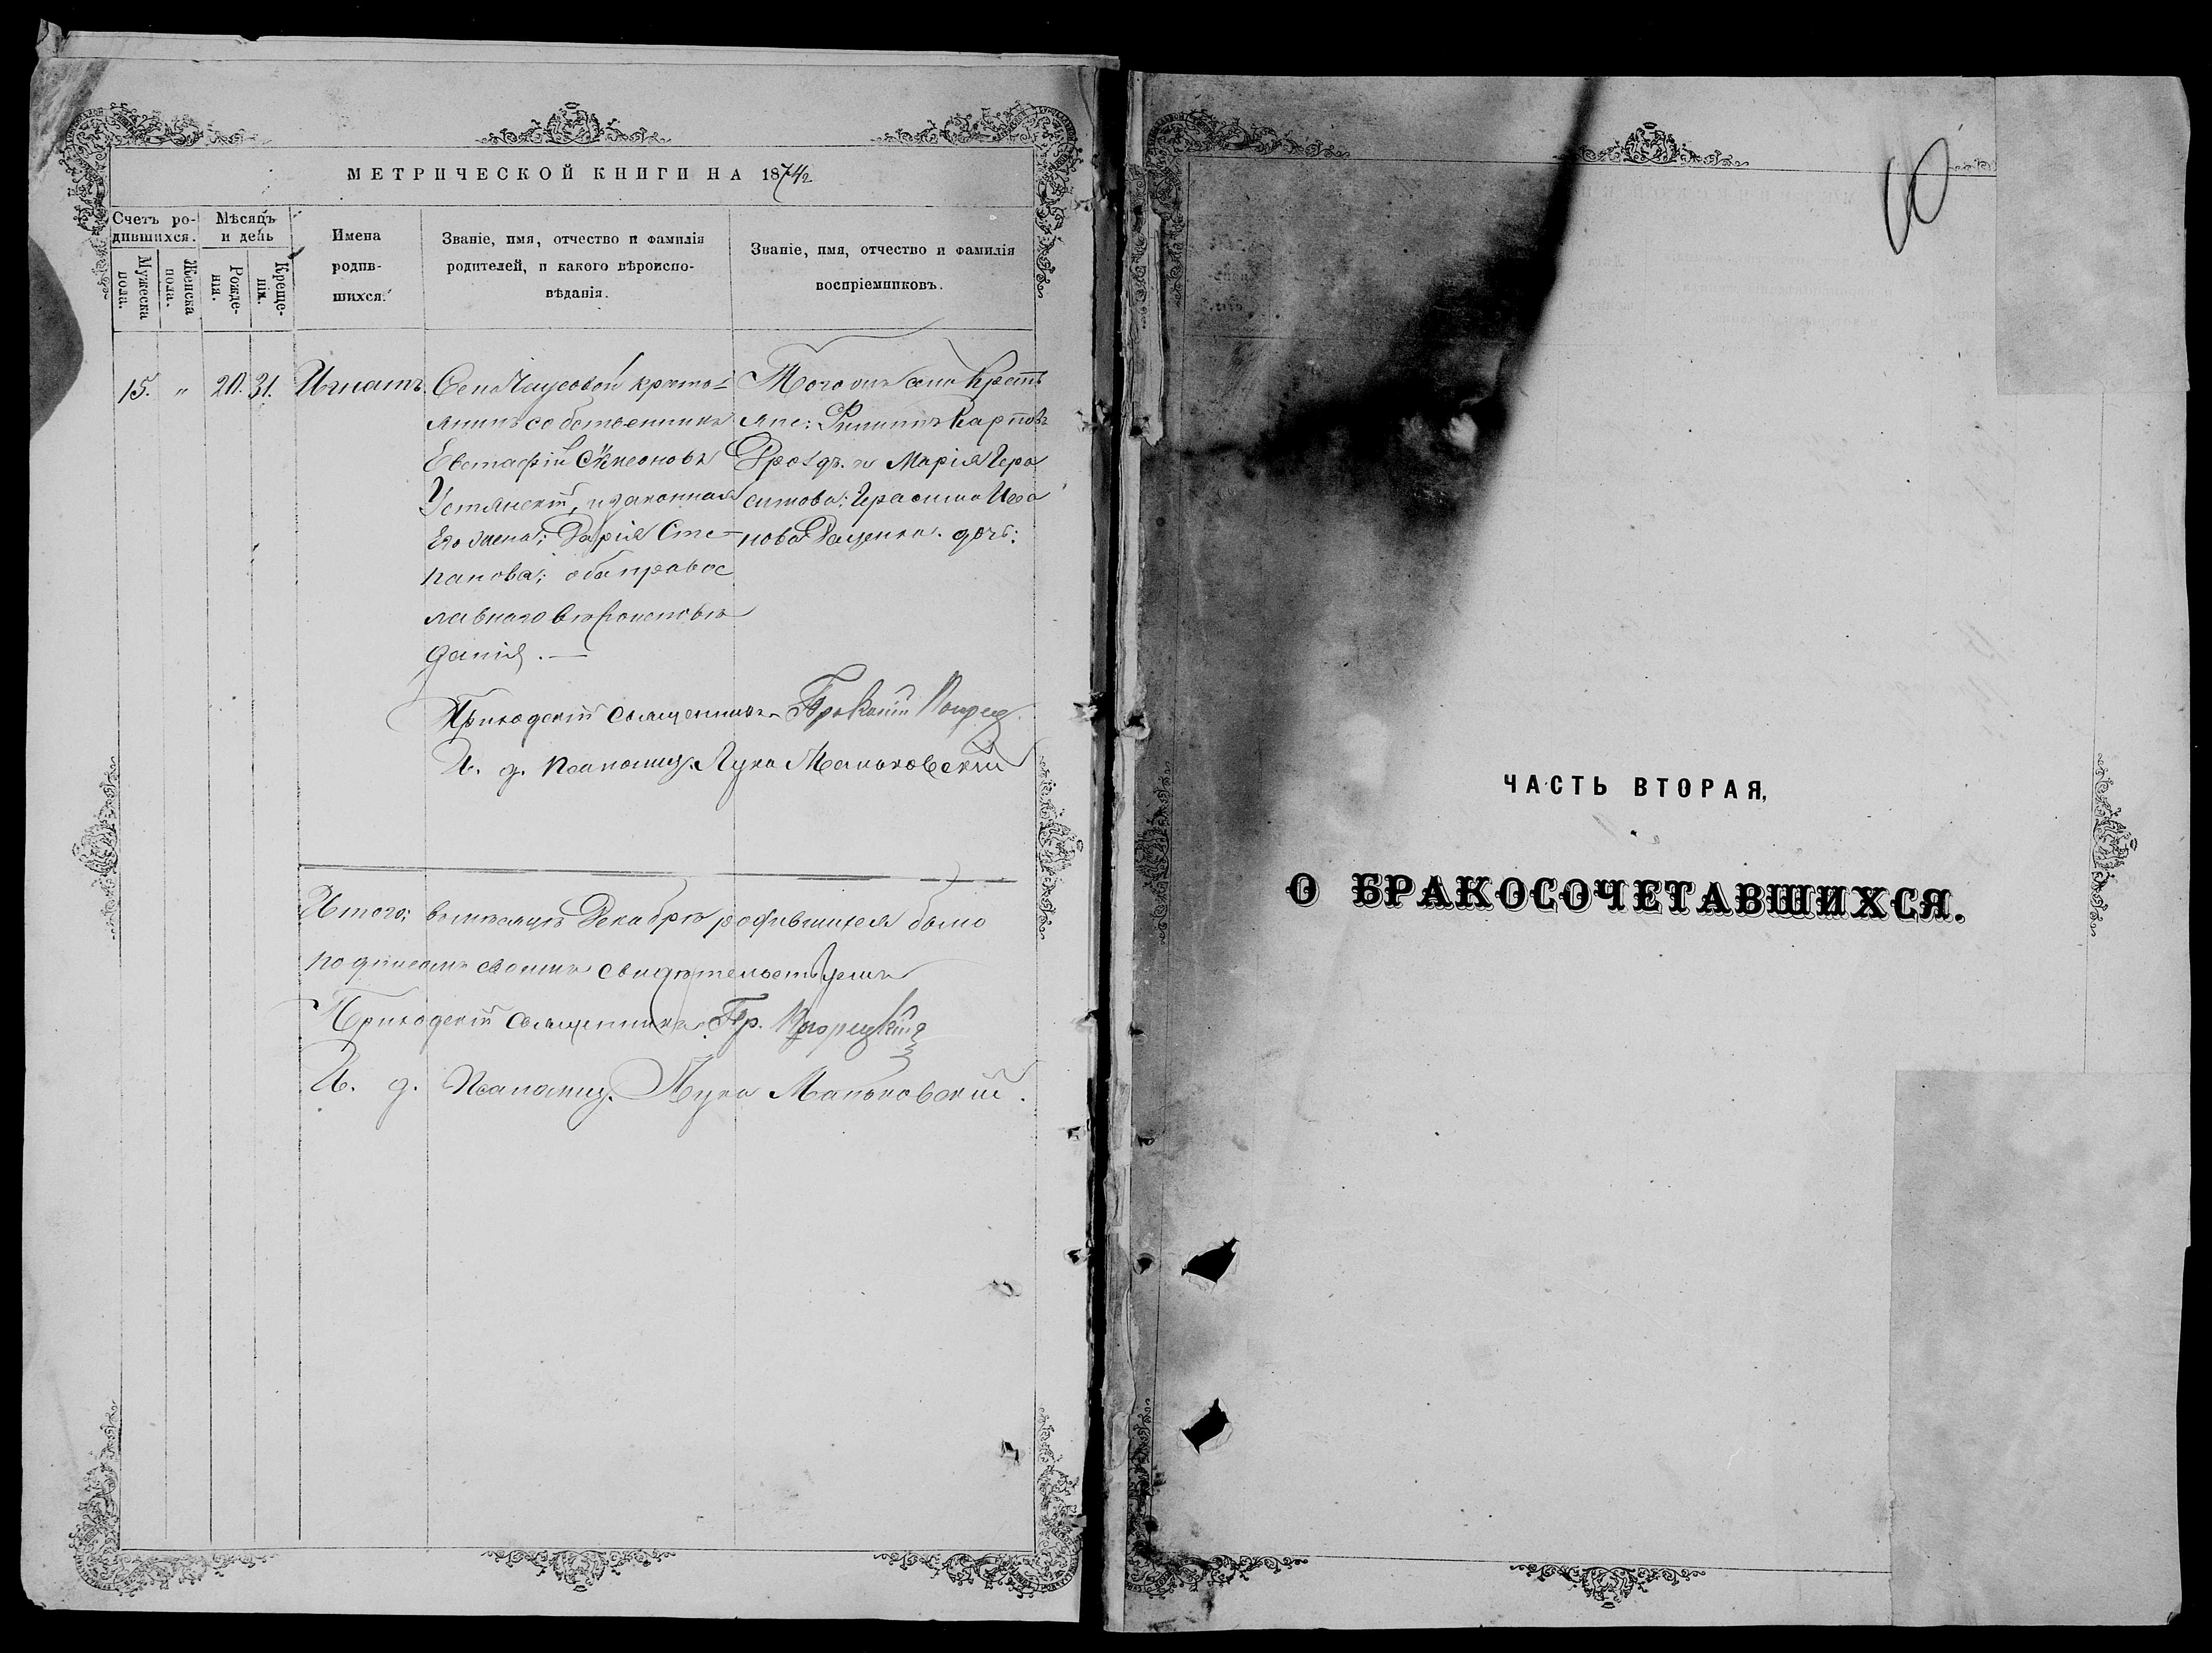 МЕТРИЧЕСКОЙ КНИГИ НА 1874/2
Счетъ ро-
дившихся.
Мужеска пола.
Женска пола.
Мѣсяцъ
и день
Рожде-
нія.
Креще-
нія.
Имена
родив-
шихся.
Званіе, имя, отчество и фамилія
родителей, и какого вѣроиспо-
вѣданія.
Званіе, имя, отчество и фамилія
воспріемниковъ.
15. " 20. 31. Игнатъ.
Села кресть-
янинъ собственникъ
Евстафій Симеоновъ
Устянскій, и законная
его жена: Дарія Сте-
панова; оба правос
лавнаго вѣроисповѣ
данія. —
Того же села крест
яне: Филиппъ Карповъ
Дроздъ и Марія Гера
симова: Герасима Ива
нова дочь:
Приходскій священникъ Прокопій
И. д. Псаломщ. Лука Маньковскій
Итого: въ мѣсяцѣ Декабрѣ родившихся было
подписомъ своимъ свидѣтельствуемъ
Приходскій священникъ Пр.
И. д. Псаломщ. Лука Маньковскій.
60
ЧАСТЬ ВТОРАЯ,
О БРАКОСОЧЕТАВШИХСЯ.